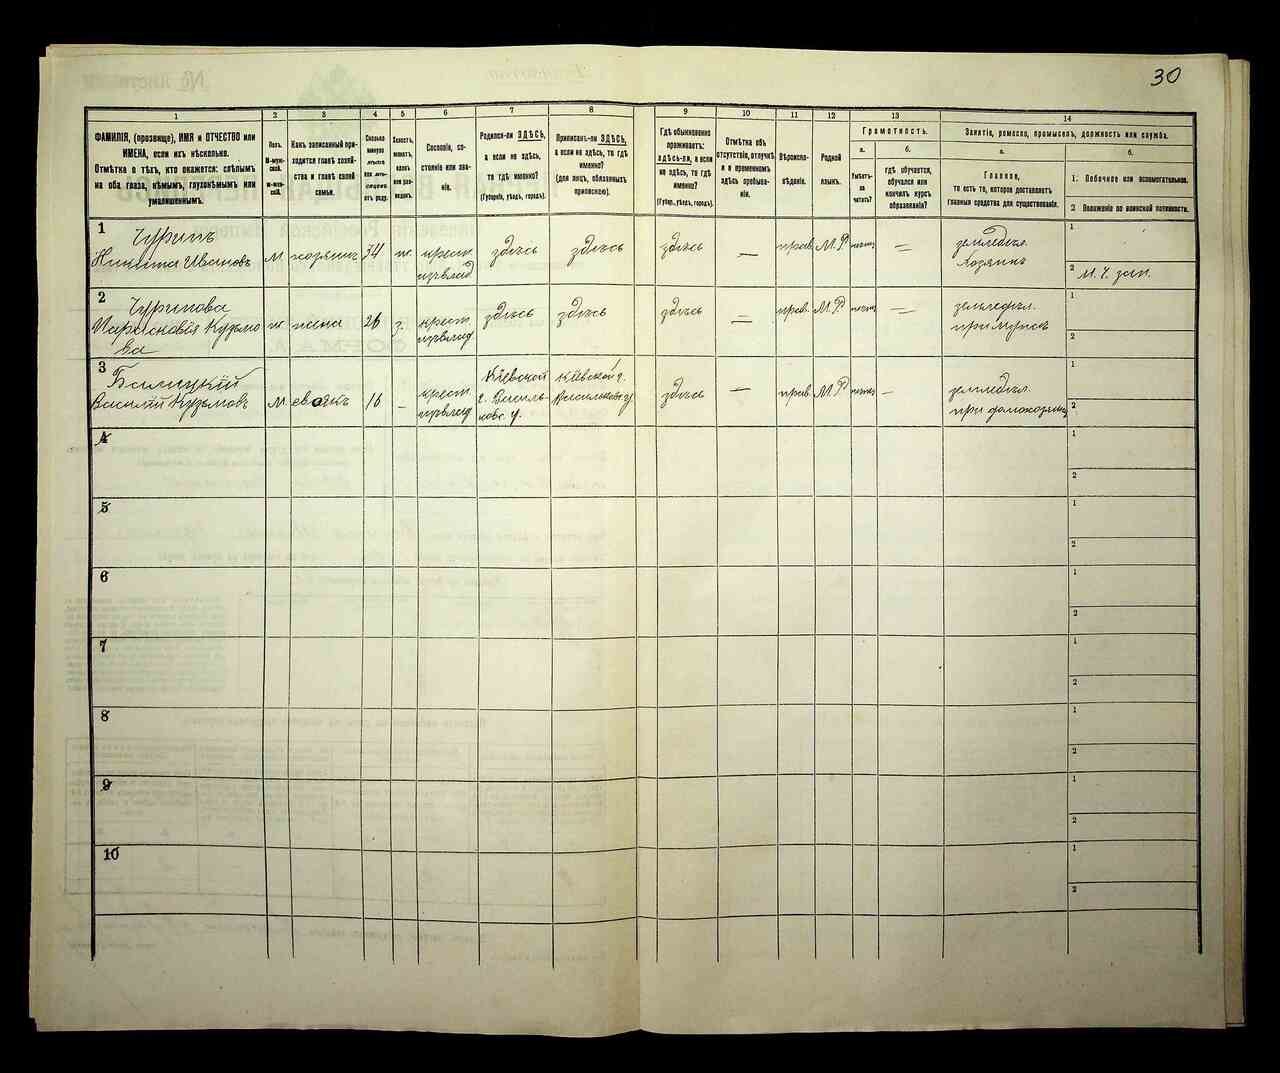 30
1
2
3
4
5
6
7
8
9
10
11
12
13
14
ФАМИЛІЯ, (прозвище), ИМЯ и ОТЧЕСТВО или
ИМЕНА, если ихъ нѣсколько.
Отмѣтка о тѣхъ, кто окажется: слѣпымъ
на оба глаза, нѣмымъ, глухонѣмымъ или
умалишеннымъ.
Полъ.
М-мужской.
ж-женскій.
Какъ записанный приходится
главѣ хозяйства
и главѣ своей
семьи.
Сколько
минуло
лѣтъ
или
мѣсяцевъ
отъ роду.
Холостъ,
женатъ,
вдовъ
или разведенъ.
Сословіе, состояніе
или званіе.
Родился-ли ЗДѢСЬ,
а если не здѣсь,
то гдѣ именно?
(Губернія, уѣздъ, городъ).
Приписанъ-ли ЗДѢСЬ,
а если не здѣсь, то гдѣ
именно?
(для лицъ, обязанныхъ
припискою).
Гдѣ обыкновенно
проживаетъ:
здѣсь-ли, а если
не здѣсь, то гдѣ
именно?
(Губер., уѣздъ, городъ).
Отмѣтка объ
отсутствіи, отлучкѣ
и о временномъ
здѣсь пребываніи.
Вѣроисповѣданіе.
Родной
языкъ.
Грамотность.
а.
Умѣетъ-ли
читать?
б.
гдѣ обучается,
обучался или
кончилъ курсъ
образованія?
Занятіе, ремесло, промыселъ, должность или служба.
а.
Главное,
то есть то, которое доставляетъ
главныя средства для существованія.
б.
1. Побочное или вспомогательное.
2 Положеніе по воинской повинности.
1
Чуринъ
Никита Ивановъ
М
хозяинъ
34
ж.
крест.
здѣсь
здѣсь
здѣсь
—
прав.
М.Р.
—
земледѣл.
Хозяинъ
1
2
2
Чуринова
Парасковія Кузьмова
ж
жена
26
з.
крест.
здѣсь
здѣсь
здѣсь
—
прав.
М.Р.
—
земледѣл.
при мужѣ
1
2
3
Билицкій
Василій Кузьмовъ
М
своякъ
16
—
крест.
Кіевской
г. Василькову.
у.
Кіевской г.
Васильков. у
здѣсь
—
прав.
М.Р.
—
земледѣл.
при домохозяинѣ
1
2
4
1
2
5
1
2
6
1
2
7
1
2
8
1
2
9
1
2
10
1
2